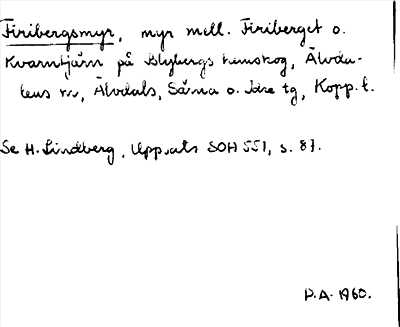 Firibergsmyr, myr mell. Firiberget o.
Kvarntjärn på Blybergs hemskog, Älvda-
lens sn, Älvdals, Särna o. Idre tg, Kopp. l.
Se H. Lindberg, Uppsats SOH 551, s. 87.
P.A. 1960.